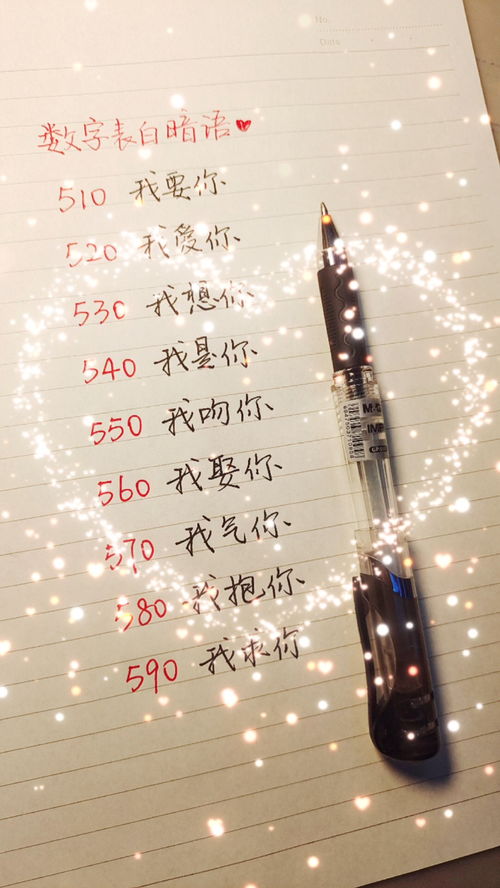 No.
Date
数字表白暗语
510 我要你
520 我愛你
530 我想你
540 我是你
550 我吻你
560 我娶你
570 我气你
580 我抱你
590 我求你
M&G